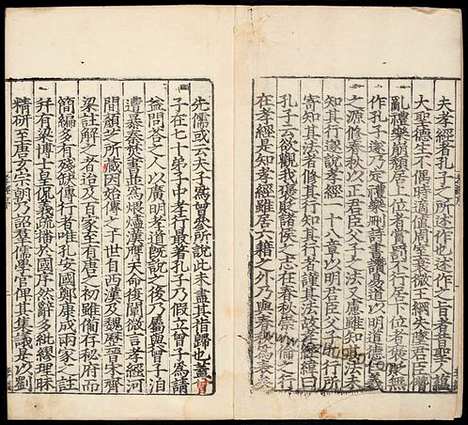 夫孝經者孔子之所述作也述作之旨者昔聖人蘊
大聖德生不偶時適值周室衰微王綱失墜君臣僭
亂禮樂崩頹居上位者賞罰不行居下位者褒貶無
作孔子遂乃定禮樂刪詩書讚易道以明道德仁義
之源修春秋以正君臣父子之法又慮雖知其法未
知其行遂說孝經一十八章以明君臣父子之行所
寄知其法者修其行知其行者謹其法故孝經緯曰
孔子云欲觀我褒貶諸侯之志在春秋崇人倫之行
在孝經是知孝經雖居六籍之外乃與春秋為表矣
先儒或云夫子為曾參所說此未盡其指歸也蓋曾
子在七十弟子中孝行最著孔子乃假立曾子為請
益問答之人以廣明孝道既說之後乃屬與曾子洎
遭暴秦焚書並為煨燼漢膺天命復闡微言孝經河
間顏芝所藏因始傳之于世自西漢及魏歷晉宋齊
梁註解之者迨及百家至有唐之初雖備存秘府而
簡編多有殘缺傳行者唯孔安國鄭康成兩家之註
并有梁博士皇侃義疏播於國序然辭多紕繆理昧
精研至唐玄宗朝乃詔羣儒學官俾其集議是以劉